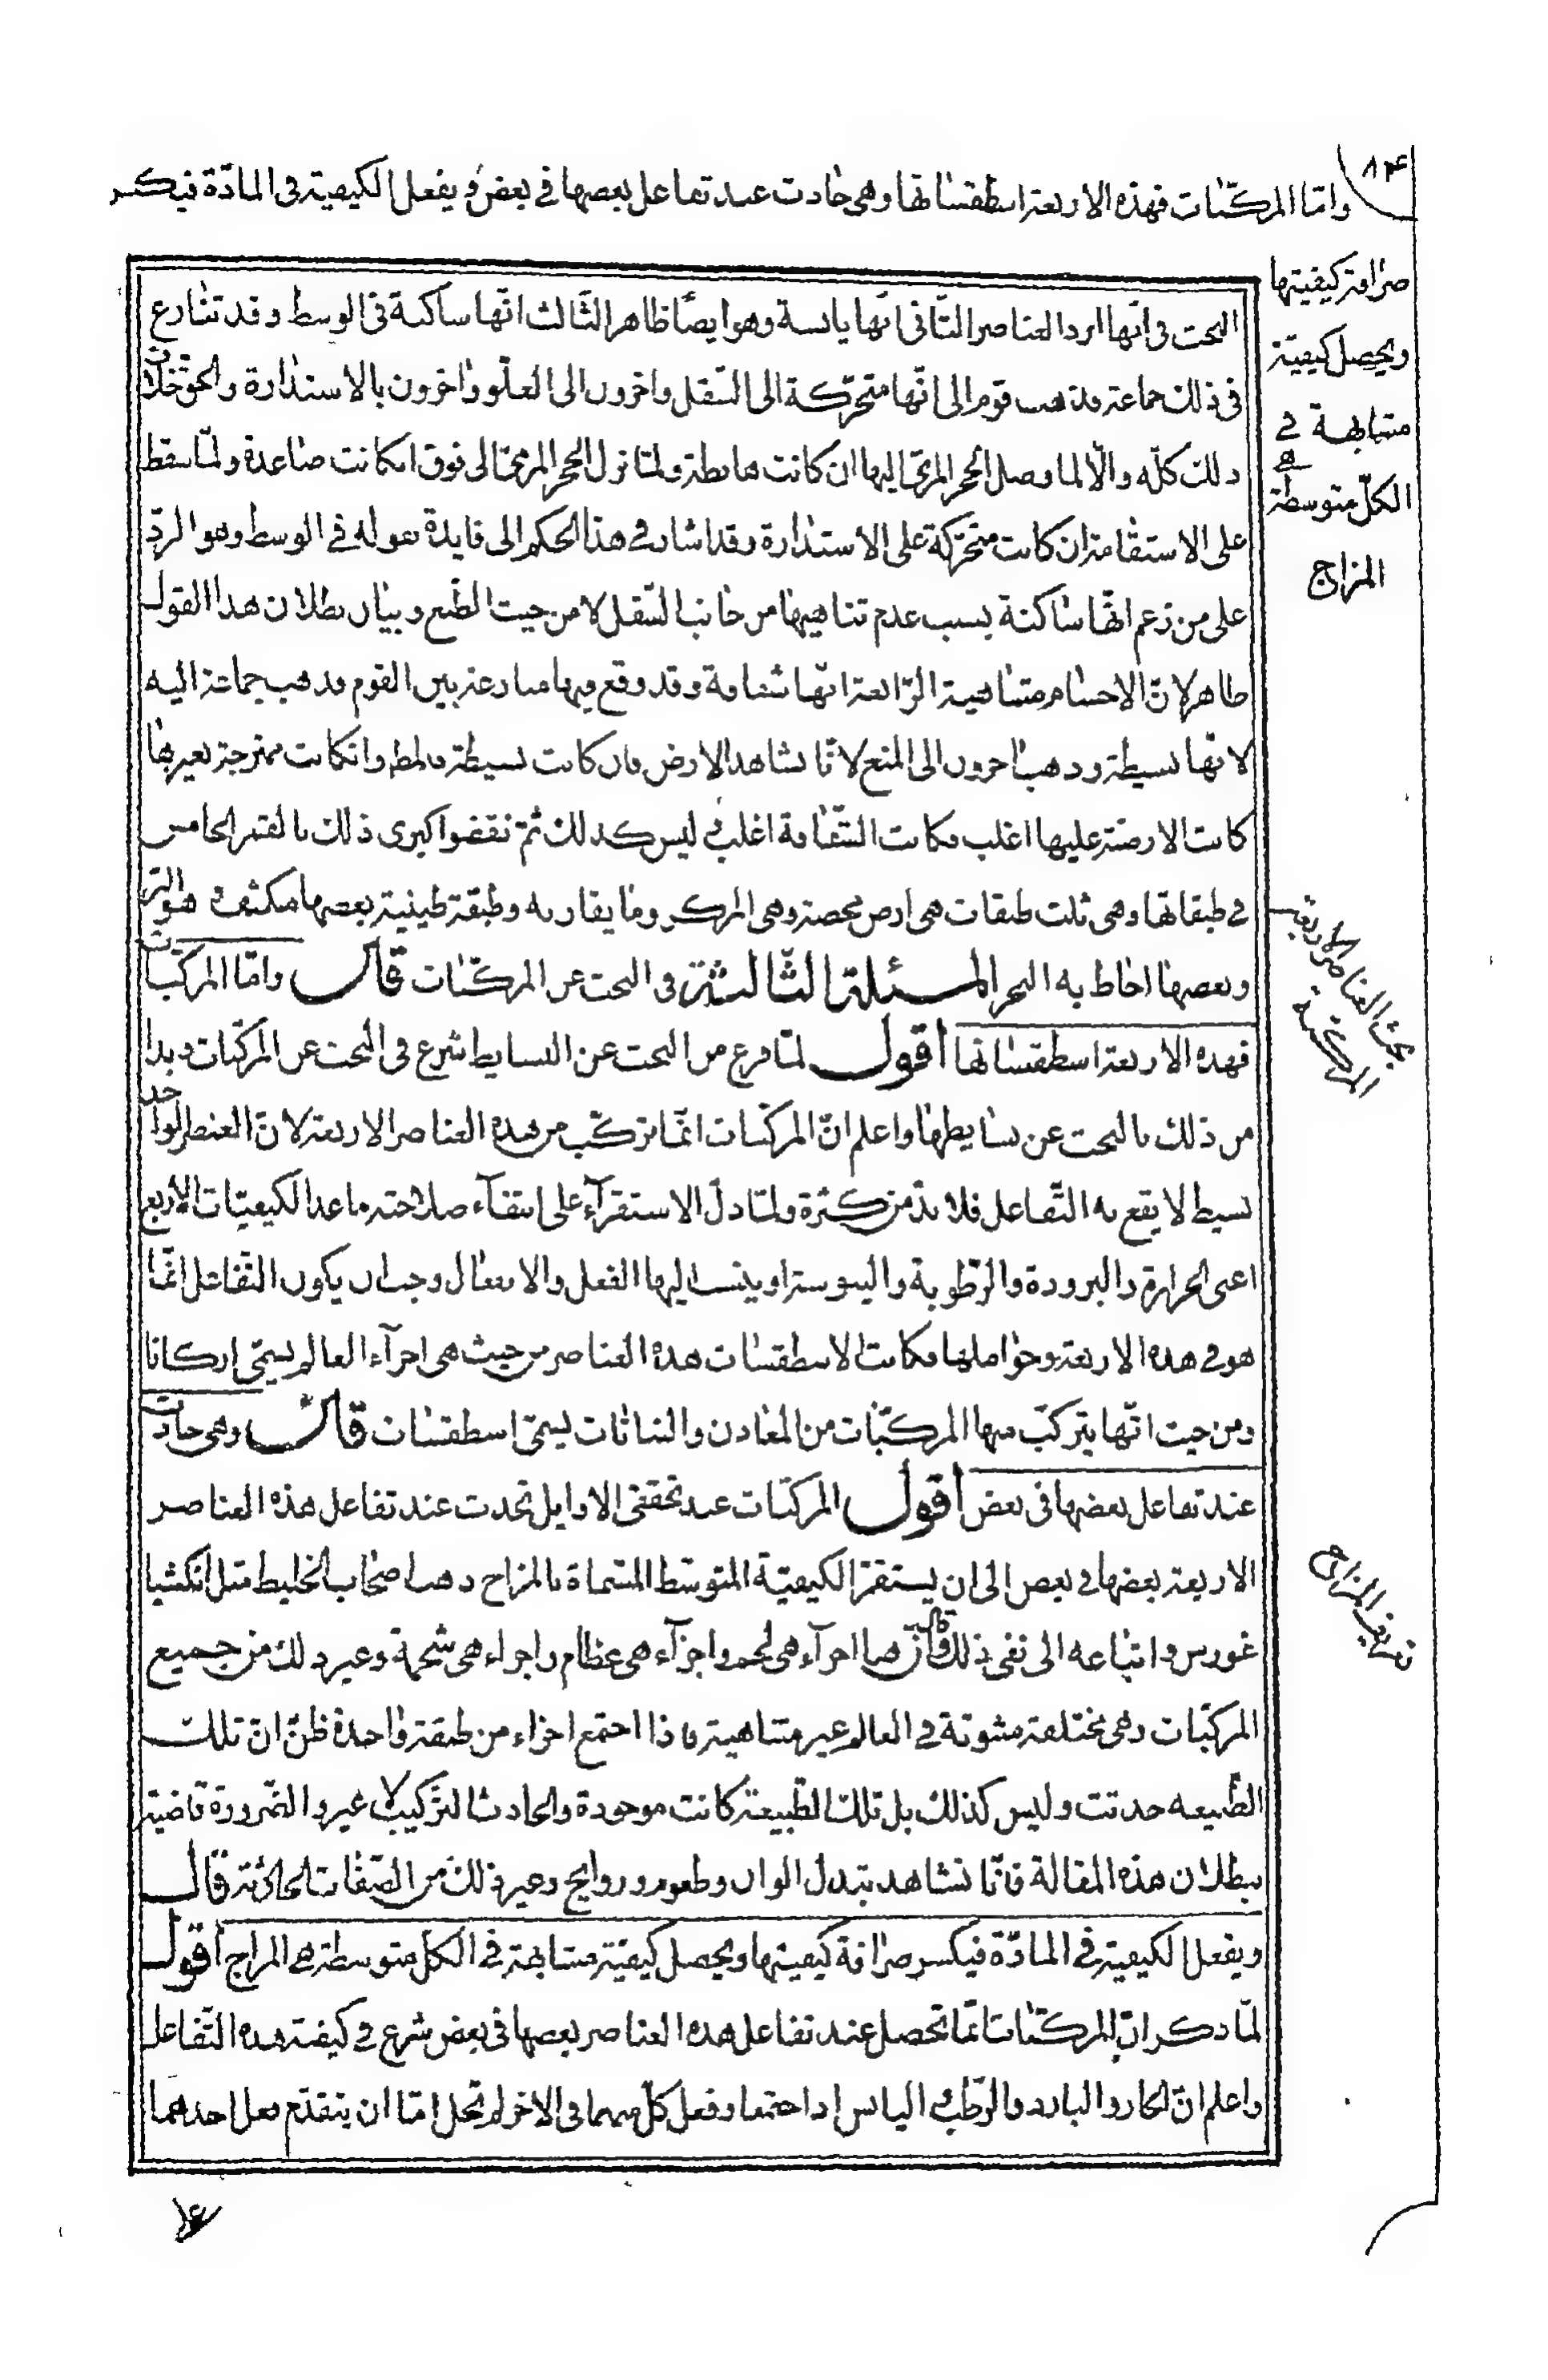 ۸۴
وامّا المركّبات فهذه الاربعة اسطقساتها وهى حادث عند تفاعل بعضها فى بعض ويفعل الكيفية فى المادّة فيكسر
صرافة كيفيتها
ويحصل كيفيّة
متشابهة فى
الكلّ متوسطة هى
المزاج
البحث فى انّها ابرد العناصر الثّانى انّها يابسة وهو ايضًا ظاهر الثّالث انّها ساكنة فى الوسط وقد تنازع
فى ذلك جماعة فذهب قوم الى انّها متحرّكة الى السّفل واخرون الى العلو واخرون بالاستدارة والحقّ خلاف
ذلك كلّه والّا لما وصل الحجر المرمىّ اليها ان كانت هابطة ولمّا نزل الحجر المرمىّ الى فوق ان كانت صاعدة ولمّا سقط
على الاستقامة ان كانت متحرّكة على الاستدارة وقد اشار فى هذا الحكم الى فايدة بقوله فى الوسط وهو الردّ
على من زعم انّها ساكنة بسبب عدم تناهيها من جانب السّفل لا من حيث الطّبع وبيان بطلان هذا القول
ظاهر لانّ الاجسام متناهية الرّابعة انّها شفافة وقد وقع فيها منازعة بين القوم فذهب جماعة اليه
لانّها بسيطة وذهب اخرون الى المنع لانّا نشاهد الارض فان كانت بسيطة فالمط وان كانت ممتزجة بغيرها
كانت الارضيّة عليها اغلب فكانت الشّفافة اغلب وليس كذلك ثمّ نقضوا كبرى ذلك بالقمر الخامس
فى طبقاتها وهى ثلث طبقات هى ارض محضة وهى المركز وما يقاربه وطبقة طينية بعضها منكشف هو البرّ
وبعضها احاط به البحر المسئلة الثّالثة فى البحث عن المركّبات قال وامّا المركّبات
فهذه الاربعة اسطقساتها اقول لمّا فرغ من البحث عن البسايط شرع فى البحث عن المركّبات وبدا
من ذلك بالبحث عن بسايطها واعلم انّ المركّبات انّما تركّب من هذه العناصر الاربعة لانّ العنصر الواحد
بسيط لا يقع به التّفاعل فلا بدّ من كثرة ولمّا دلّ الاستقرآء على انتفآء صلاحية ما عدا الكيفيّات الاربع
اعنى الحرارة والبرودة والرّطوبة واليبوسة او ينسب اليها الفعل والانفعال وجب ان يكون التّفاعل انّما
هو فى هذه الاربعة وحواملها فكانت الاسطقسات هذه العناصر من حيث هى اجزآء العالم يسمّى اركانا
ومن حيث انّها يتركّب منها المركّبات من المعادن والنباتات يسمّى اسطقسات قال وهى حادث
عند تفاعل بعضها فى بعض اقول المركّبات عند تحقّقى الاوايل تحدث عند تفاعل هذه العناصر
الاربعة بعضها فى بعض الى ان يستقرّ الكيفيّة المتوسّط المسمّاة بالمزاج وذهب اصحاب الخليط مثل انكشيا
غورس واتباعه الى نفى ذلك وقال انّ هنا اجزآء هى لحم واجزآء هى عظام واجزاء هى شحمة وغير ذلك من جميع
المركّبات وهى مختلفة مبثوثة فى العالم غير متناهية فاذا اجتمع اجزاء من طبقة واحدة ظنّ انّ تلك
الطّبيعه حدثت وليس كذلك بل تلك الطّبيعة كانت موجودة والحادث التركيب لا غير والضّرورة قاضية
ببطلان هذه المقالة فانّا نشاهد تبدل الوان وطعوم وروايح وغير ذلك من الصّفات الحادثة قال
ويفعل الكيفية فى المادّة فيكسر صرافة كيفيتها ويحصل كيفيّة متشابهة فى الكلّ متوسطة هى المزاج اقول
لمّا ذكر انّ المركّبات انّما تحصل عند تفاعل هذه العناصر بعضها فى بعض شرع فى كيفية هذه التّفاعل
واعلم انّ الحار والبارد والرّطب واليابس اذا اجتمعا وفعل كلّ منهما فى الاخر لم تخل امّا ان يتقدّم فعل احدهما
بحث العناصر الاربعة
المركّبة
تعريف المزاج